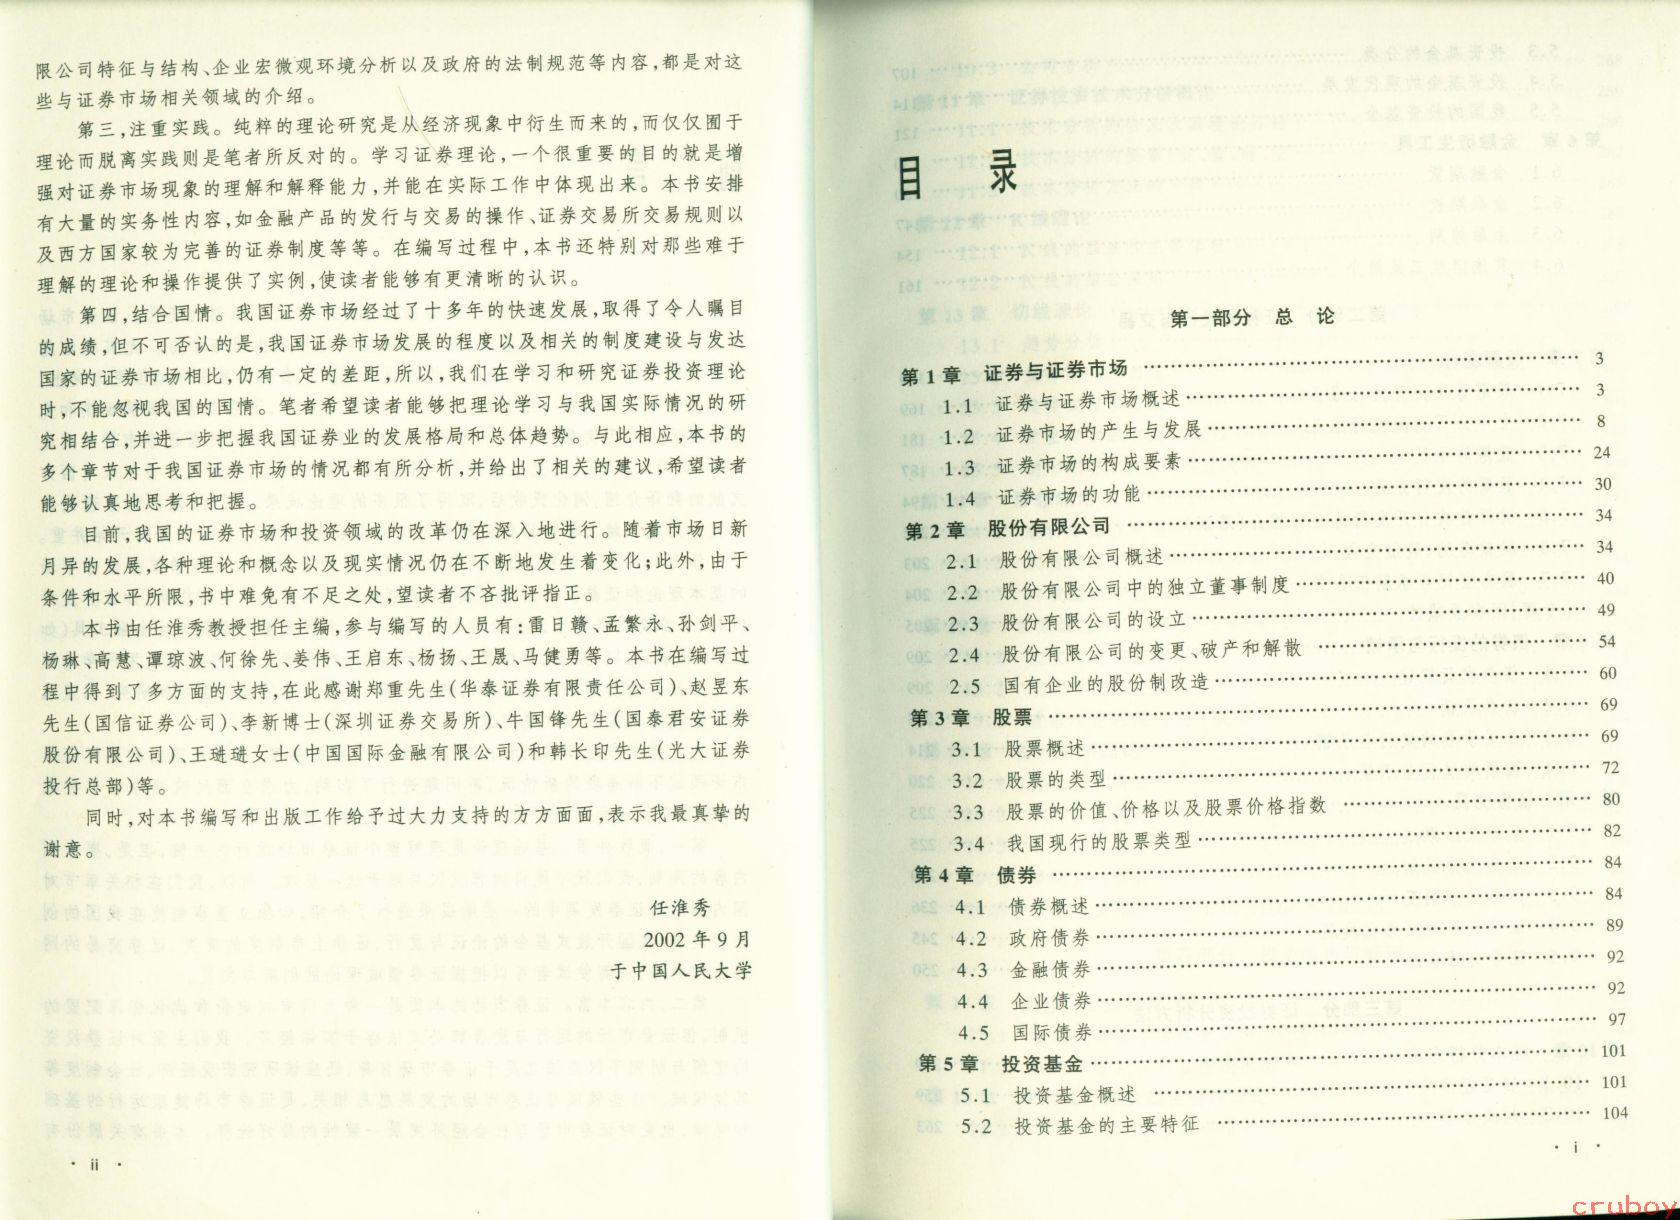 限公司特征与结构、企业宏微观环境分析以及政府的法制规范等内容,都是对这
些与证券市场相关领域的介绍。
第三,注重实践。纯粹的理论研究是从经济现象中衍生而来的,而仅仅囿于
理论而脱离实践则是笔者所反对的。学习证券理论,一个很重要的目的就是增
强对证券市场现象的理解和解释能力,并能在实际工作中体现出来。本书安排
有大量的实务性内容,如金融产品的发行与交易的操作、证券交易所交易规则以
及西方国家较为完善的证券制度等等。在编写过程中,本书还特别对那些难于
理解的理论和操作提供了实例,使读者能够有更清晰的认识。
第四,结合国情。我国证券市场经过了十多年的快速发展,取得了令人瞩目
的成绩,但不可否认的是,我国证券市场发展的程度以及相关的制度建设与发达
国家的证券市场相比,仍有一定的差距,所以,我们在学习和研究证券投资理论
时,不能忽视我国的国情。笔者希望读者能够把理论学习与我国实际情况的研
究相结合,并进一步把握我国证券业的发展格局和总体趋势。与此相应,本书的
多个章节对于我国证券市场的情况都有所分析,并给出了相关的建议,希望读者
能够认真地思考和把握。
目前,我国的证券市场和投资领域的改革仍在深入地进行。随着市场日新
月异的发展,各种理论和概念以及现实情况仍在不断地发生着变化;此外,由于
条件和水平所限,书中难免有不足之处,望读者不吝批评指正。
本书由任淮秀教授担任主编,参与编写的人员有:雷日赣、孟繁永、孙剑平、
杨琳、高慧、谭琼波、何徐先、姜伟、王启东、杨扬、王晟、马健勇等。本书在编写过
程中得到了多方面的支持,在此感谢郑重先生(华泰证券有限责任公司)、赵昱东
先生(国信证券公司)、李新博士(深圳证券交易所)、牛国锋先生(国泰君安证券
股份有限公司)、王琎琎女士(中国国际金融有限公司)和韩长印先生(光大证券
投行总部)等。
同时,对本书编写和出版工作给予过大力支持的方方面面,表示我最真挚的
谢意。
任淮秀
2002 年 9 月
于中国人民大学
· ii ·
目 录
第一部分 总 论
第 1 章 证券与证券市场 …… 3
1.1 证券与证券市场概述 …… 3
1.2 证券市场的产生与发展 …… 8
1.3 证券市场的构成要素 …… 24
1.4 证券市场的功能 …… 30
第 2 章 股份有限公司 …… 34
2.1 股份有限公司概述 …… 34
2.2 股份有限公司中的独立董事制度 …… 40
2.3 股份有限公司的设立 …… 49
2.4 股份有限公司的变更、破产和解散 …… 54
2.5 国有企业的股份制改造 …… 60
第 3 章 股票 …… 69
3.1 股票概述 …… 69
3.2 股票的类型 …… 72
3.3 股票的价值、价格以及股票价格指数 …… 80
3.4 我国现行的股票类型 …… 82
第 4 章 债券 …… 84
4.1 债券概述 …… 84
4.2 政府债券 …… 89
4.3 金融债券 …… 92
4.4 企业债券 …… 92
4.5 国际债券 …… 97
第 5 章 投资基金 …… 101
5.1 投资基金概述 …… 101
5.2 投资基金的主要特征 …… 104
· i ·
cruboy